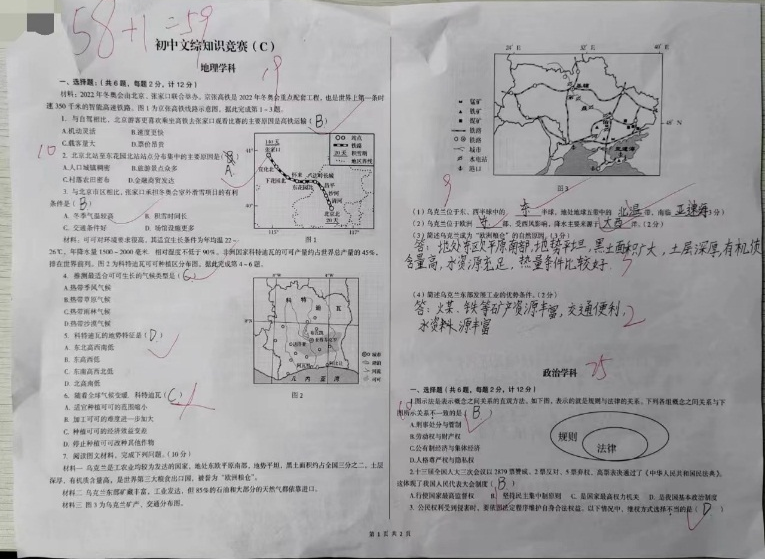 58+1=59
初中文综知识竞赛（C）
地理学科
19
一、选择题：（共 6 题，每题 2 分，计 12 分）
材料：2022 年冬奥会由北京、张家口联合举办。京张高铁是 2022 年冬奥会重点配套工程，也是世界上第一条时
速 350 千米的智能高速铁路。图 1 为京张高铁线路示意图。据此完成第 1～3 题。
1. 与自驾相比，北京游客更喜欢乘坐高铁去张家口观看比赛的主要原因是高铁运输（B）
A.机动灵活 B.速度更快
C.载客量大 D.票价昂贵
10
2. 北京北站至东花园北站站点分布集中的主要原因是（A）
A.人口城镇稠密 B.旅游景点众多
C.村落农田密布 D.金融商贸发达
3. 与北京市区相比，张家口承担冬奥会室外滑雪项目的有利
条件是（B）
A. 冬季气温较高 B. 积雪时间长
C. 交通条件好 D. 场馆设施更多
图 1
材料：可可对环境要求很高，其适宜生长条件为年均温 22～
26℃，年降水量 1500～2000 毫米，相对湿度不低于 90%。非洲国家科特迪瓦的可可产量约占世界总产量的 45%，
排在世界前列。图 2 为科特迪瓦可可种植区分布图。据此完成第 4～6 题。
4. 推测最适合可可生长的气候类型是（C）
A.热带季风气候
B.热带草原气候
C.热带雨林气候
D.热带沙漠气候
5. 科特迪瓦的地势特征是（D）
A. 东北高西南低
B. 东高西低
C. 东南高西北低
D. 北高南低
6. 随着全球气候变暖，科特迪瓦（C）
A. 适宜种植可可的范围缩小
B. 加工可可的难度进一步加大
C. 种植可可的经济效益变差
D. 停止种植可可改种其他作物
科特迪瓦
几内亚湾
图 2
7. 阅读图文材料，完成下列问题。（10 分）
材料一 乌克兰是工农业均较为发达的国家，地处东欧平原南部，地势平坦，黑土面积约占全国三分之二，土层
深厚，有机质含量高，是世界第三大粮食出口国，被誉为“欧洲粮仓”。
材料二 乌克兰东部矿藏丰富，工业发达，但 85%的石油和大部分的天然气都依靠进口。
材料三 图 3 为乌克兰矿产、交通分布图。
24°E 32°E 40°E
48°N
锰矿
铁矿
煤矿
铁路
城市
水电站
港口
图 3
9
（1）乌克兰位于东、西半球中的 东 半球，地处地球五带中的 北温 带，南临 亚速海
（2）乌克兰位于欧洲 东 部，受西风影响，降水主要来源于 大西 洋。（2 分）
（3）简述乌克兰成为“欧洲粮仓”的自然原因。（3 分）
答：地处东欧平原南部，地势平坦，黑土面积广大，土层深厚，有机质
含量高，水资源充足，热量条件比较好。
3
（4）简述乌克兰东部发展工业的优势条件。（2 分）
答：煤、铁等矿产资源丰富，交通便利，
水资源丰富
2
政治学科 25
一、选择题（共 6 题，每题 2 分，计 12 分）
1.图示法是表示概念之间关系的直观方法。如下图，表示的就是规则与法律的关系。下列各组概念之间关系与下
图所示关系不一致的是（B）
A.刑事处分与管制
B.劳动权与财产权
C.公有制经济与集体经济
D.人格尊严权与隐私权
规则
法律
2.十三届全国人大三次会议以 2879 票赞成、2 票反对、5 票弃权，高票表决通过了《中华人民共和国民法典》。
这体现了我国人民代表大会制度（B）
A.行使国家最高监督权 B. 坚持民主集中制原则 C. 是国家最高权力机关 D. 是我国基本政治制度
3. 公民权利受到侵害时，要依照法定程序维护自身合法权益。以下情况中，维权方式选择不当的是（D）
第 1 页 共 2 页